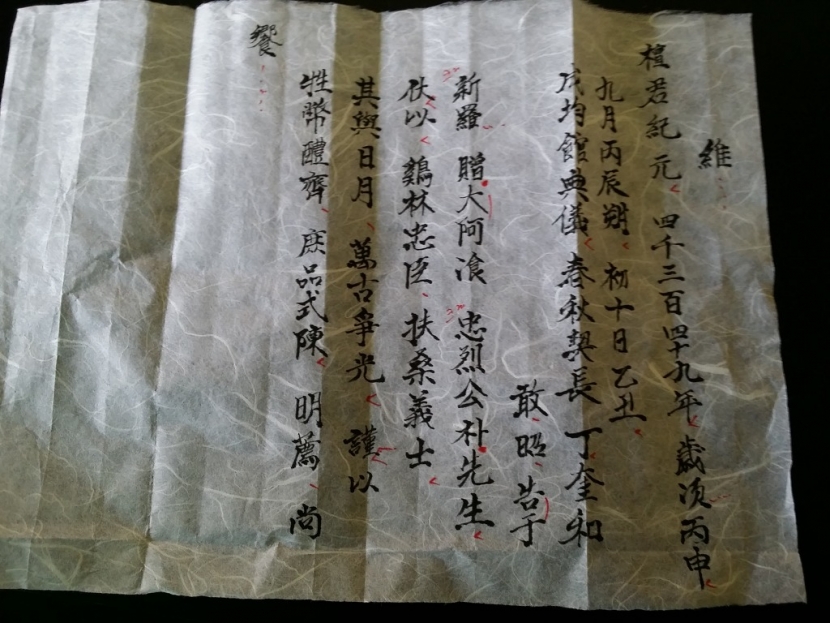 維
檀君紀元 四千三百四十九年 歲次丙申
九月丙辰朔 初十日乙丑
成均館典儀 春秋契長 丁奎和
敢昭告于
新羅 贈大阿飡 忠烈公朴先生
伏以 鷄林忠臣 扶桑義士
其與日月 萬古爭光 謹以
牲幣醴齊 庶品式陳 明薦 尚
饗